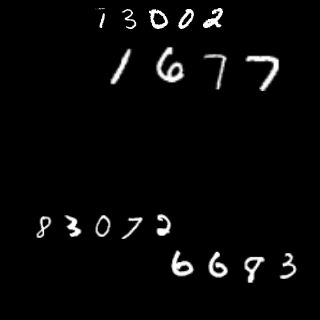 13002
1677
83072
6683